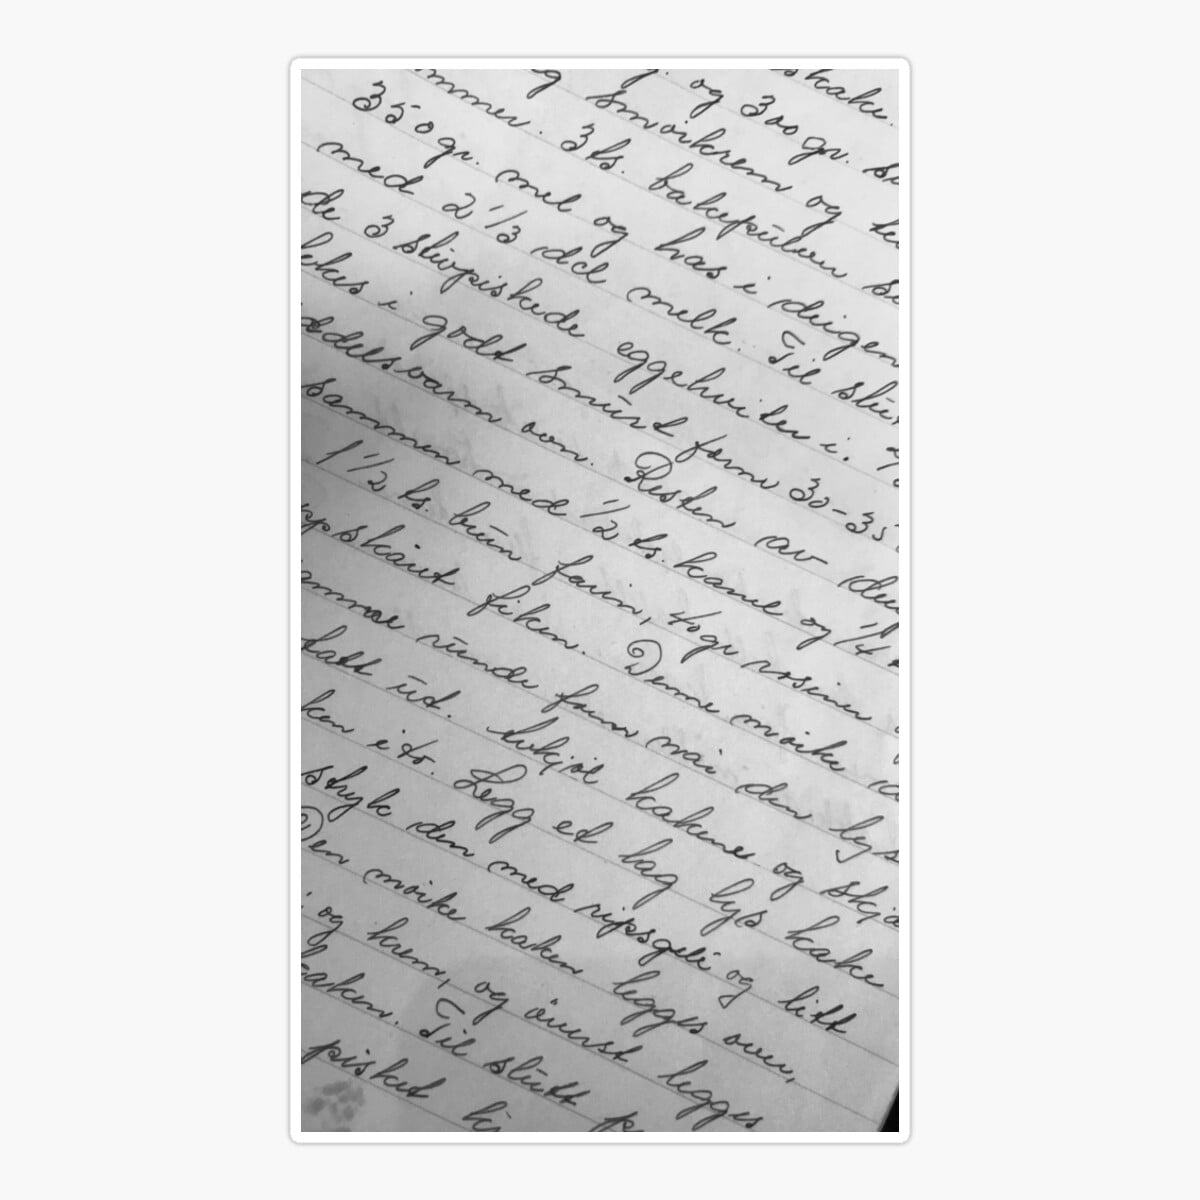 skake.
g. og 300gr. s
g smørkrem og te
mmer. 3 ts. bakepulver si
350gr. mel og has i deigen
med 2 1/3 dcl melk. Til slut
de 3 stivpiskede eggehviter i.
ekes i godt smurt form 30-35
ddelsvarm ovn. Resten av dei
sammen med 1/2 ts. kanel og 1/4 t
1 1/2 ts. brun farin, 40gr rosiner
ppskåret fiken. Denne mørke d
amme runde form den lys
tatt ut. Avkjøl kakene og skjæ
ken i to. Legg et lag lys kake
stryk den med ripsgelé og litt
Den mørke kaken legges over,
og krem, og øverst legges
aken. Til slutt p
pisket k